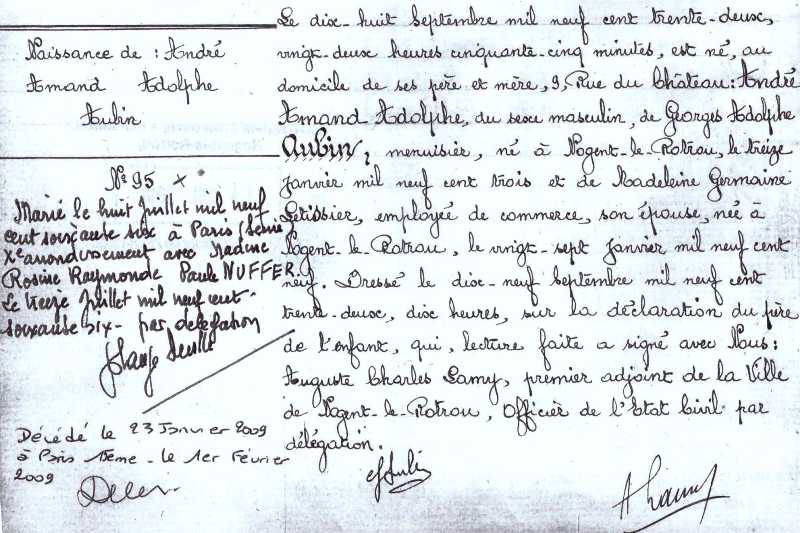 Naissance de : André
Amand Adolphe
Aubin
N° 95
Marié le huit Juillet mil neuf
cent soixante six à Paris (Seine)
Xe arrondissement avec Nadine
Rosine Raymonde Paule NUFFER.
Le treize Juillet mil neuf cent
soixante six - par délégation
Décédé le 23 Janvier 2009
à Paris 15ème - le 1er Février
2009
Le dix-huit Septembre mil neuf cent trente-deux,
vingt-deux heures cinquante-cinq minutes, est né, au
domicile de ses père et mère, 9, Rue du Château: André
Amand Adolphe, du sexe masculin, de Georges Adolphe
Aubin, menuisier, né à Nogent-le-Rotrou, le treize
Janvier mil neuf cent trois et de Madeleine Germaine
Letissier, employée de commerce, son épouse, née à
Nogent-le-Rotrou, le vingt-sept Janvier mil neuf cent
neuf. Dressé le dix-neuf Septembre mil neuf cent
trente-deux, dix heures, sur la déclaration du père
de l'enfant, qui, lecture faite a signé avec Nous:
Auguste Charles Lamy, premier adjoint de la Ville
de Nogent-le-Rotrou, Officier de l'Etat Civil par
délégation.